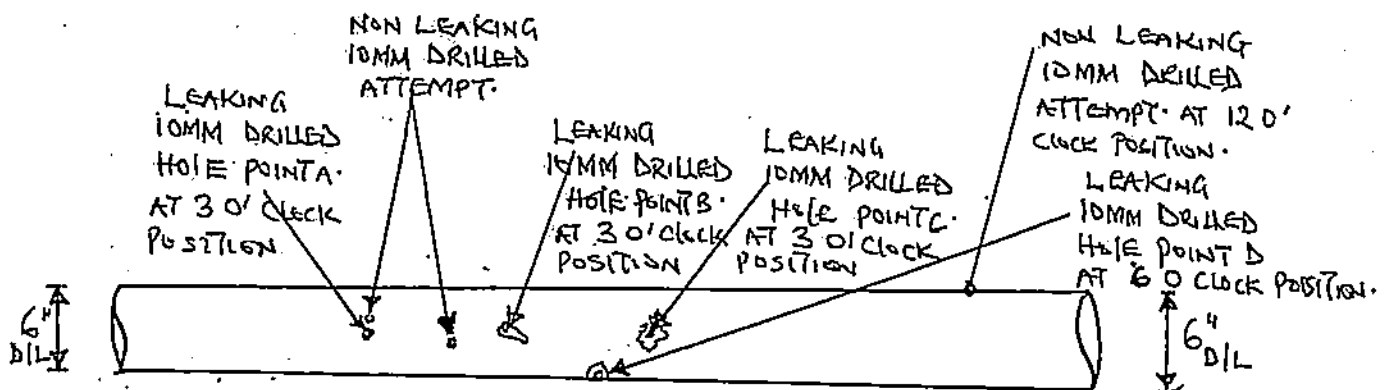 NON LEAKING
10MM DRILLED
ATTEMPT.
LEAKING
10MM DRILLED
HOLE POINT A.
AT 3 O' CLOCK
POSITION
LEAKING
10MM DRILLED
HOLE POINT B.
AT 3 O' CLOCK
POSITION
LEAKING
10MM DRILLED
HOLE POINT C.
AT 3 O' CLOCK
POSITION
NON LEAKING
10MM DRILLED
ATTEMPT. AT 12 O'
CLOCK POSITION.
LEAKING
10MM DRILLED
HOLE POINT D
AT 6 O CLOCK POSITION.
6"
D/L
6"
D/L